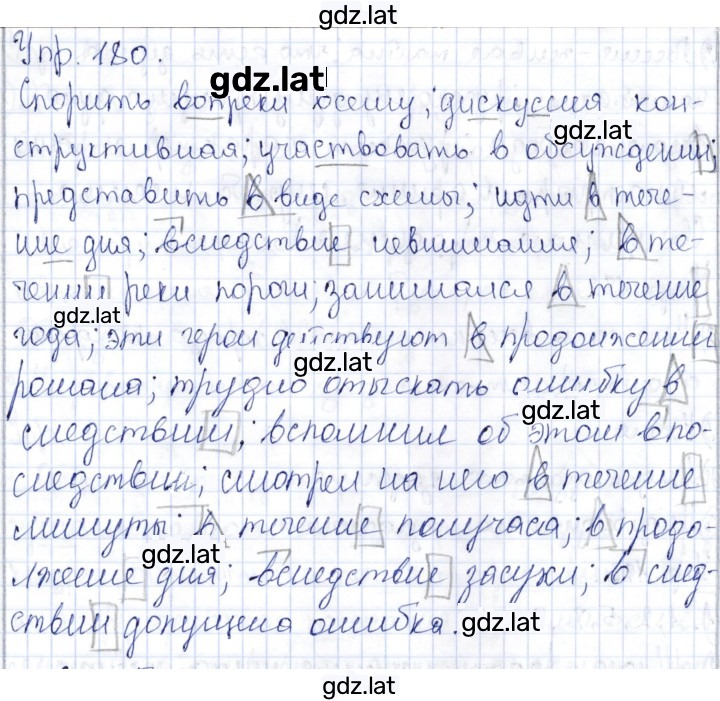 gdz.lat
Упр. 180.
gdz.lat
Спорить вопреки всему; дискуссия кон-
gdz.lat
структивная; участвовать в обсуждении;
представить в виде схемы; идти в тече-
ние дня; вследствие невнимания; в те-
чении реки пороги; занимался в течение
gdz.lat
года; эти герои действуют в продолжении
gdz.lat
романа; трудно отыскать ошибку в
gdz.lat
следствии; вспомнил об этом впо-
следствии; смотрел на него в течение
минуты. в течение получаса; в продо-
gdz.lat
лжение дня; вследствие засухи; в след-
ствии допущена ошибка.
gdz.lat
gdz.lat